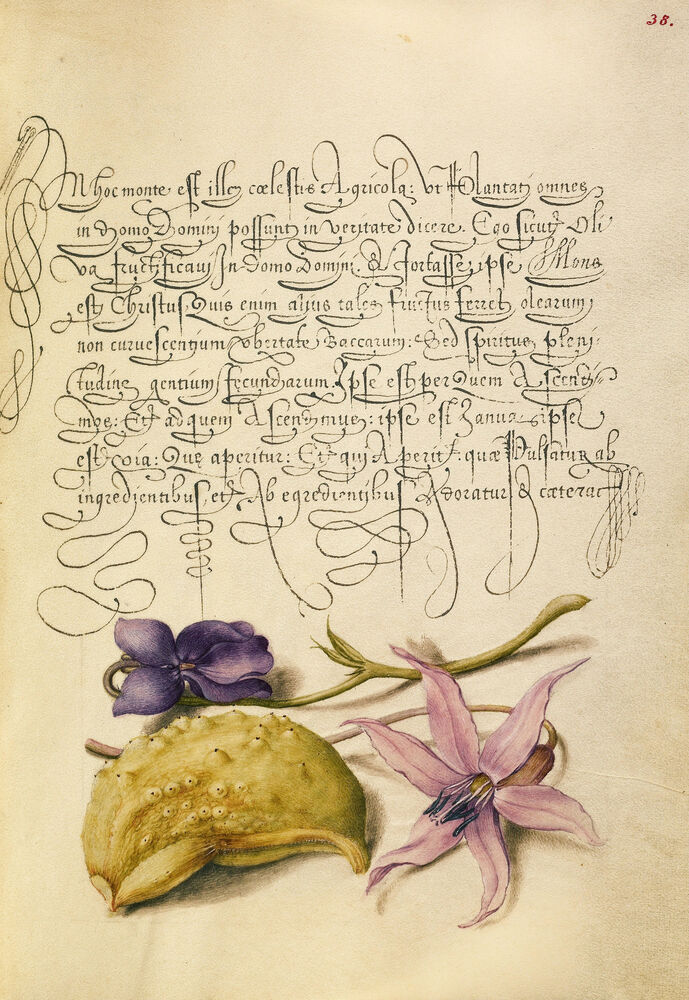 38.
IN hoc monte est ille cœlestis Agricola: Vt Plantati omnes
in Domo Domini possunt in veritate dicere. Ego sicut Oli
va fructificaui In Domo Domini. & Fortasse ipse Mons
est Christus Quis enim alius tales fructus ferret olearum
non curuescentium vbertate Baccarum: Sed spiritus pleni-
tudine gentium fecundarum. Ipse est per Quem Ascendi-
mus: Et ad quem Ascendimus: ipse est Ianua ipse
est via: Quę aperitur: Et qui Aperit: quæ Pulsatur ab
ingredientibus, et Ab egredientibus Adoratur & cætera